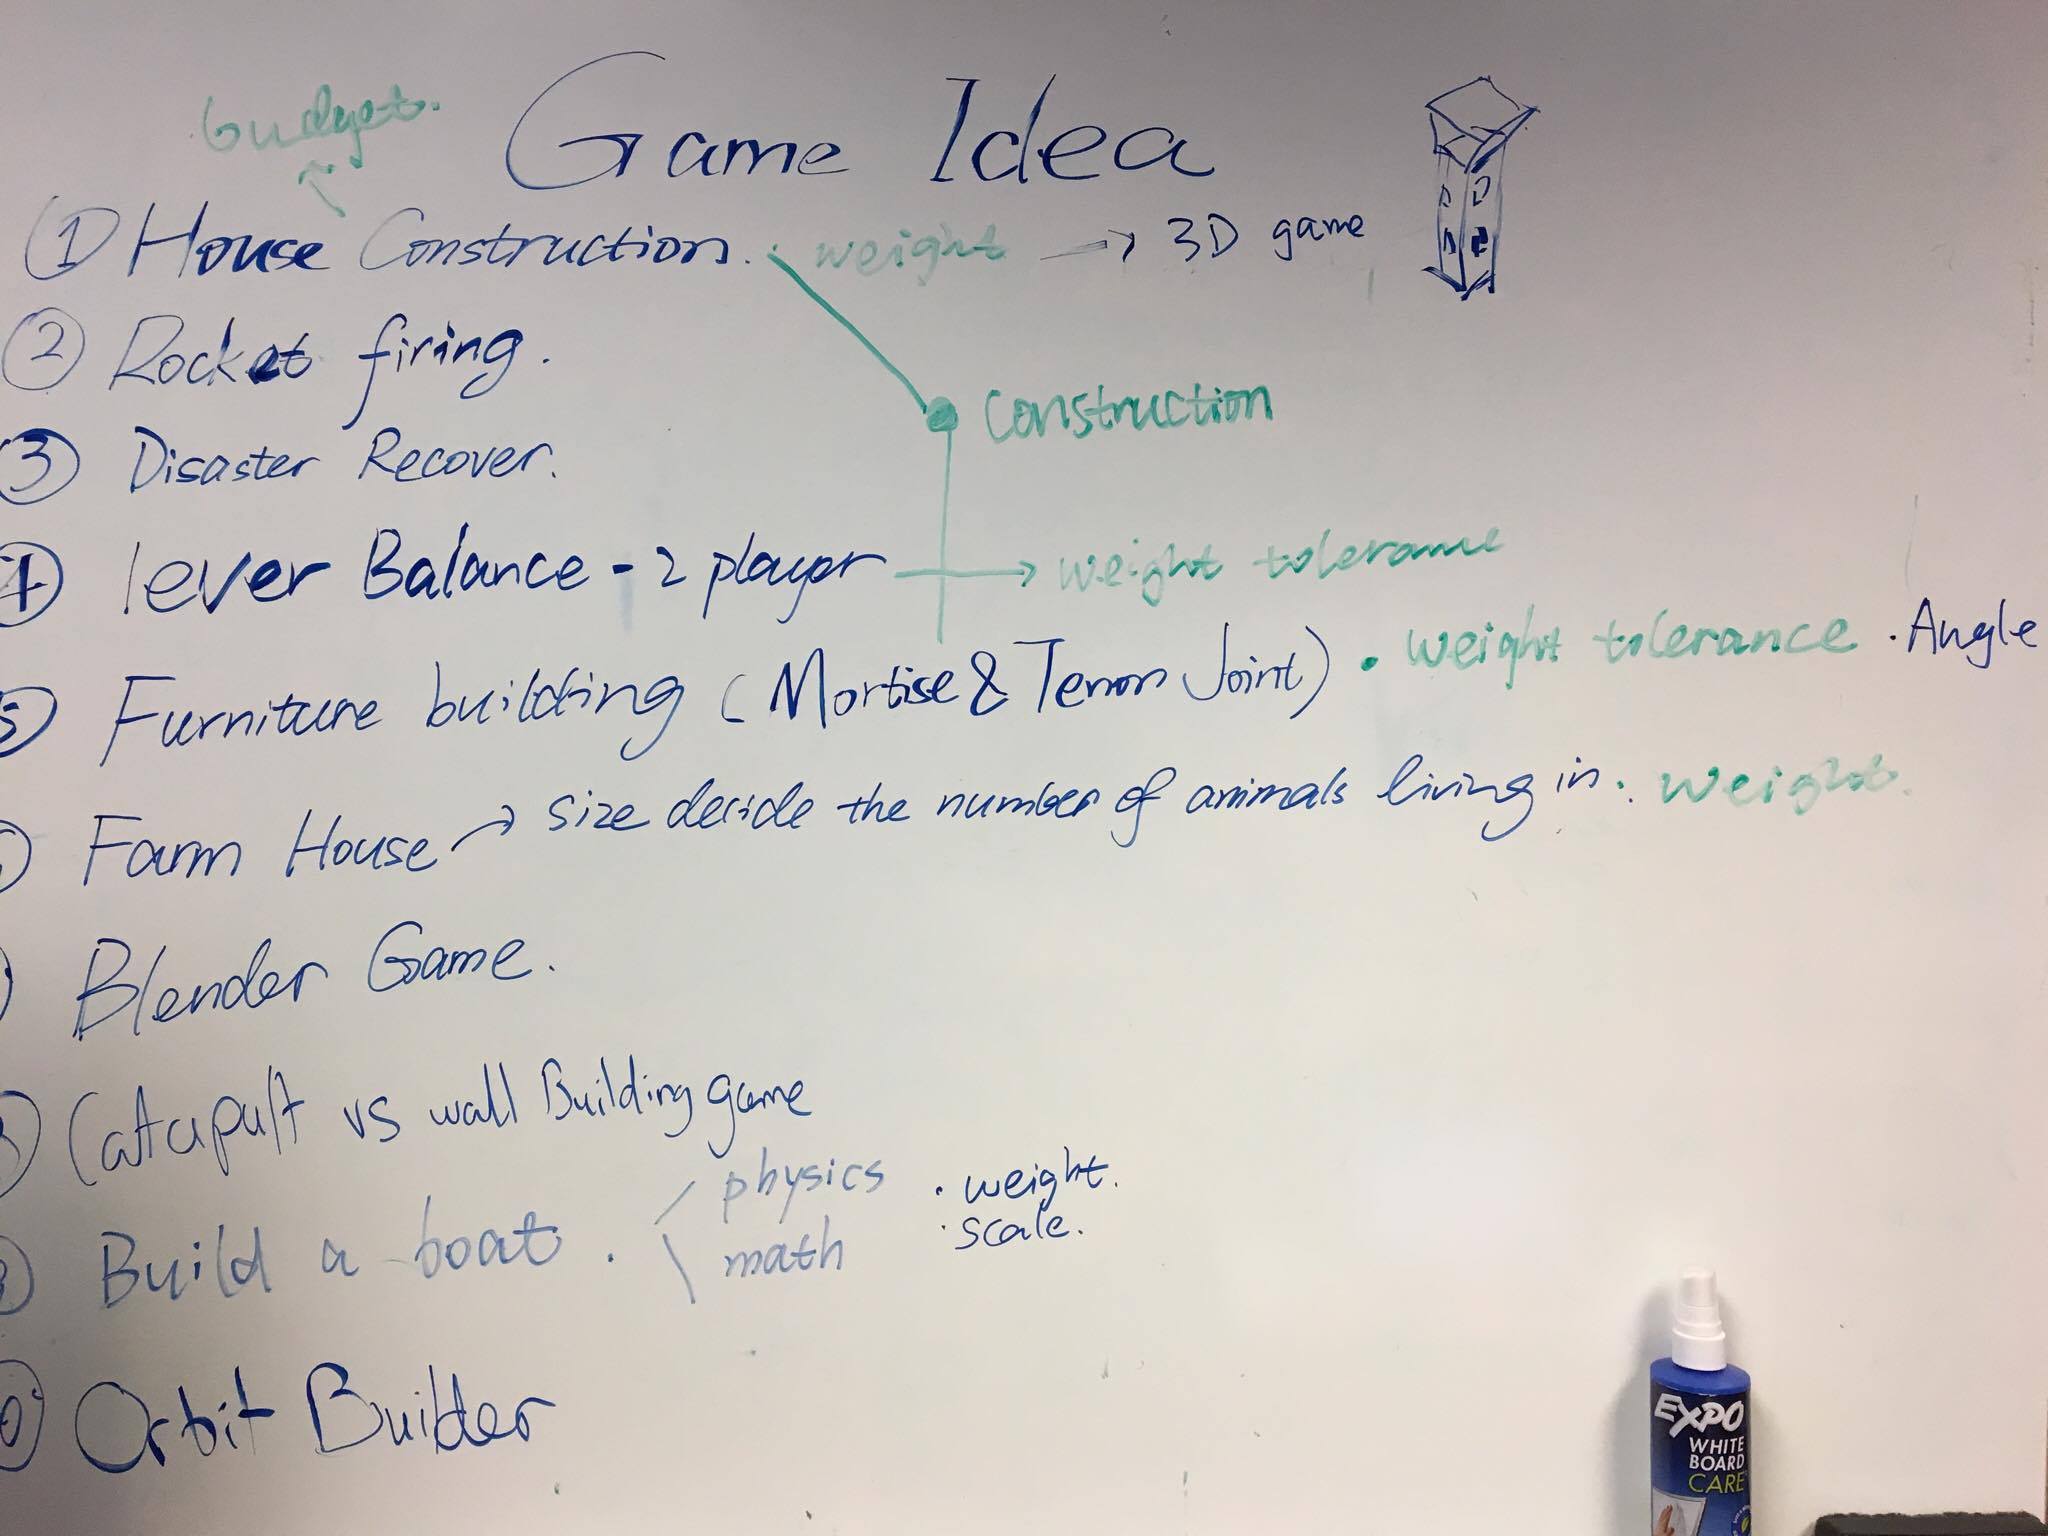 budget.
Game Idea
① House Construction. · weight → 3D game
② Rocket firing.
Construction
③ Disaster Recover.
④ lever Balance - 2 player → weight tolerame
⑤ Furniture building (Mortise & Tenon Joint) · weight tolerance · Angle
Farm House → size decide the number of animals living in. · weight.
Blender Game.
Catapult vs wall Building game
Build a boat . physics · weight.
math · scale.
Orbit Builder
EXPO
WHITE
BOARD
CARE